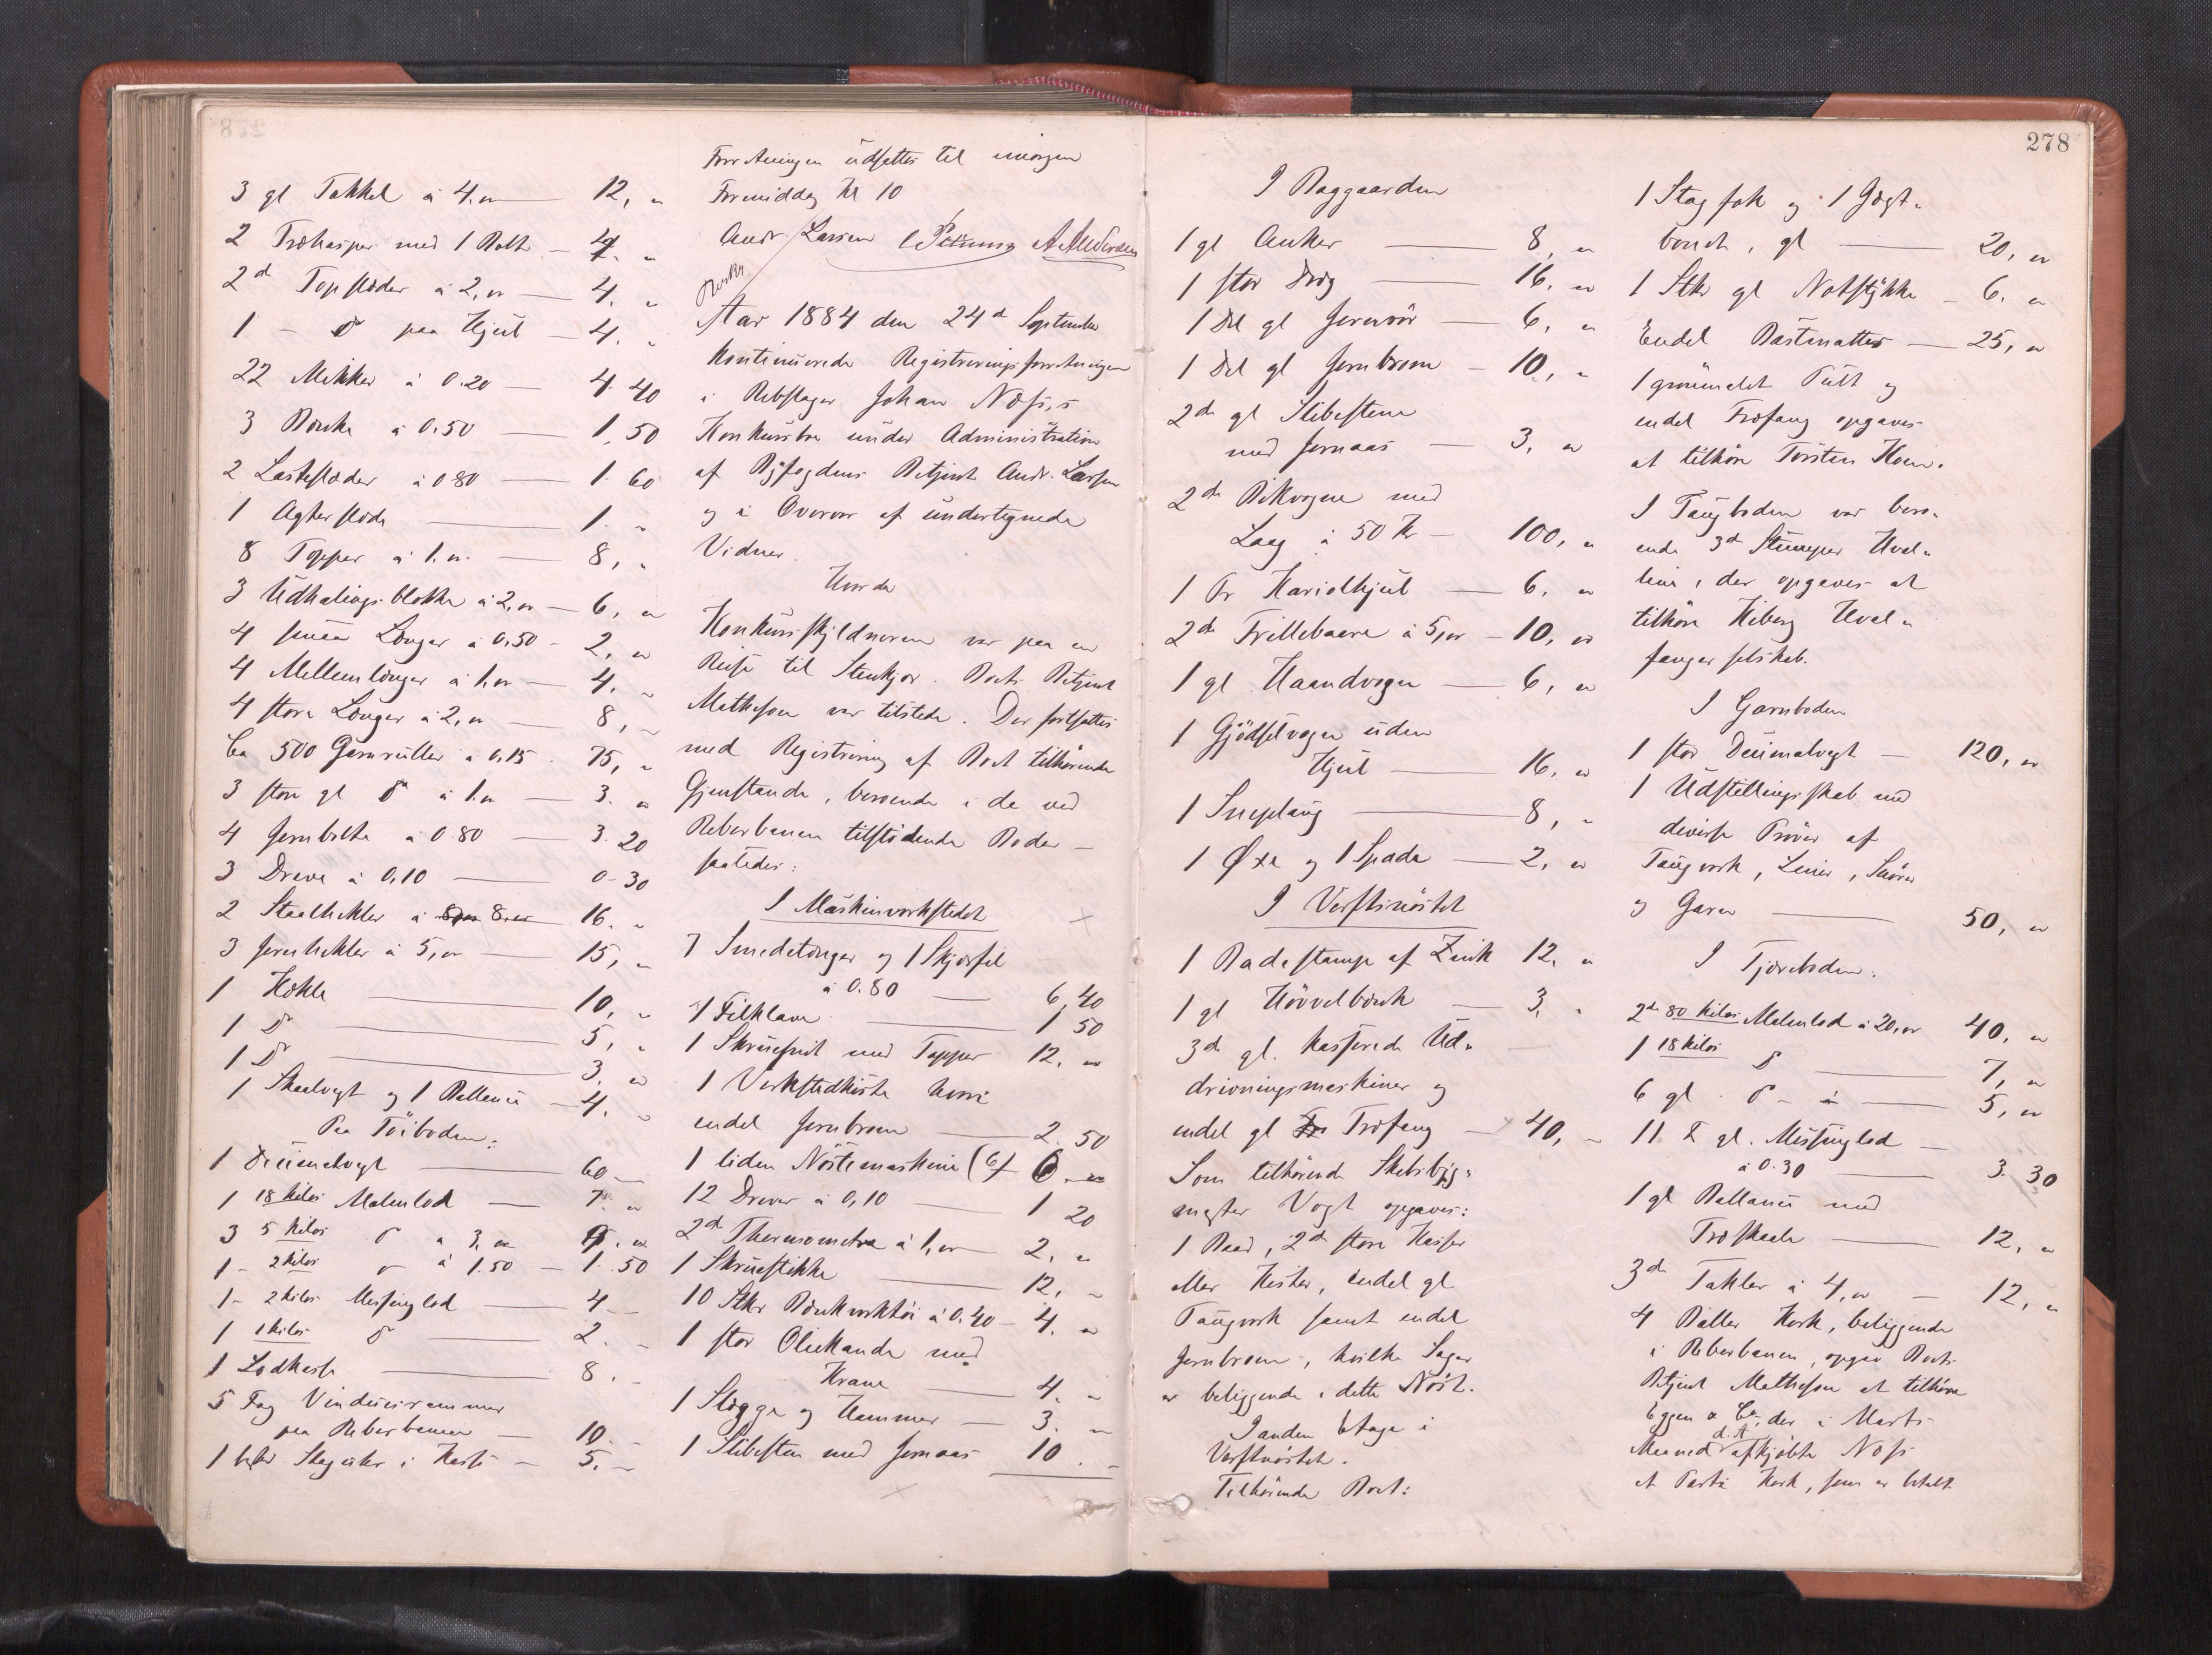 278
3 gl Takkel à 4.„ 12, „
2 Træhasper med 1 Bolt 4. „
2d Topslæder à 2,„ 4. „
1 - do paa Hjul 4. „
22 Mikker à 0.20 4. 40
3 Bænke à 0,50 1, 50
2 Lasteslæder à 0 80 1. 60
1 Agterslæde 1. „
8 Topper à 1.„ 8, „
3 Udhalings blokke à 2,„ 6, „
4 smaa Længer à 0,50 2, „
4 Mellemlænger à 1,„ 4. „
4 store Længer à 2,„ 8, „
Ca 500 Garnruller à 0,15 75, „
3 store gl do à 1.„ 3. „
4 Jernbolte à 0.80 3. 20
3 Dreve à 0,10 0-30
2 Staalhekler à 8,„ 16. „
3 Jernhekler à 5,„ 15, „
1 Hekle 10, „
1 do 5, „
1 do 3. „
1 Skaalvegt og 1 Ballance 4. „
Paa Töiboden:
1 Decimalvegt 60 „
1 18 kilos Malmlod 7. „
3 5 kilos do à 3,„ 9. „
1 - 2 kilos do à 1.50 1. 50
1 - 2 kilos Messinglod 4 „
1 1 kilos do 2. „
1 Lodkasse 8. „
5 Fag Vinduesrammer
paa Reberbanen 10. „
1 Skydeler i Kasse 5. „
Forretningen udsattes til imorgen
Formiddag Kl 10
Andr. Larsen A Andersen
Aar 1884 den 24d September
kontinuerede Registreringsforretningen
i Rebslager Johan Næss's
Konkursbo under Administration
af Byfogdens Betjent Andr. Larsen
og i Overvær af undertegnede
Vidner.
Hvorda
Konkursskyldneren var paa en
Reise til Stenkjær. Boets Betjent
Mathesen var tilstede. Der fortsattes
med Registrering af Boet tilhørende
Gjenstande, beroende i de ved
Reberbanen tilstødende Boder -
saaledes:
I Maskinverkstedet
7 Smedetænger og 1 Skjærfil
à 0.80 6, 40
1 Filklave 1 50
1 Skruesnit med Tapper 12. „
1 Verkstedkiste hvori
endel Jernkram 2. 50
1 liden Nöstemaskine (6) 6. „
12 Drever à 0,10 1 20
2d Thermometre à 1,„ 2. „
1 Skruestikke 12. „
10 Stkr Bænkverktøi à 0.40 4. „
1 stor Oliekande med
Krane 4. „
1 Slægge og Hammer 3. „
1 Slibesten med Jernaas 10. „
I Baggaarden
1 gl Anker 8, „
1 stor Drog 16. „
1 Del gl Jernrör 6, „
1 Del gl Jernkram 10, „
2de gl Slibestene
med Jernaas 3. „
2de Rikvogne med
Laag à 50 Kr 100, „
1 Pr Kariolhjul 6. „
2de Trillebaare à 5,„ 10, „
1 gl Haandvogn 6, „
1 Gjødselvogn uden
Hjul 16. „
1 Sneplaug 8, „
1 Øxe og 1 Spade 2, „
I Verftsnöstet
1 Badestamp af Zink 12, „
1 gl Hövvelbænk 3, „
3de gl. kasserede Ud-
drivningsmaskiner og
endel gl Træfang 40, „
Som tilhørende Skibsbyg-
mester Vogt opgaves:
1 Baad, 2de store Kasser
eller Kister, endel gl
Taugverk samt endel
Jernkram, hvilke Sager
er beliggende i dette Nöst.
I anden Etage i
Verftnöstet.
Tilhørende Boet:
1 Stagfok og 1 Jægt-
bonet, gl 20, „
1 Stkr gl Notstykke 6. „
Endel Bastmatter 25, „
1 grønmalet Pult og
endel Træfang opgaves
at tilhøre Torsten Hoem.
I Taugboden var bero-
ende 3de Stumper Hval-
line, der opgaves at
tilhøre Kiberg Hval-
fangerselskab.
I Garnboden
1 stor Decimalvegt 120, „
1 Udstillingsskab med
diverse Prøver af
Taugverk, Liner, Snører
og Garn 50, „
I Tjæreboden:
2de 80 Kilos Malmlod à 20,„ 40, „
1 18 kilos do 7, „
6 gl. do 5, „
11 ℔ gl. Messinglod
à 0.30 3. 30
1 gl Ballance med
Træskaale 12, „
3de Takler à 4,„ 12, „
4 Baller Kork, beliggende
i Reberbanen, opgav Boets
Betjent Mathesen at tilhøre
Eggen & Co, der i Marts
Maaned d. A afkjøbte Næss
et Parti Kork, som er betalt